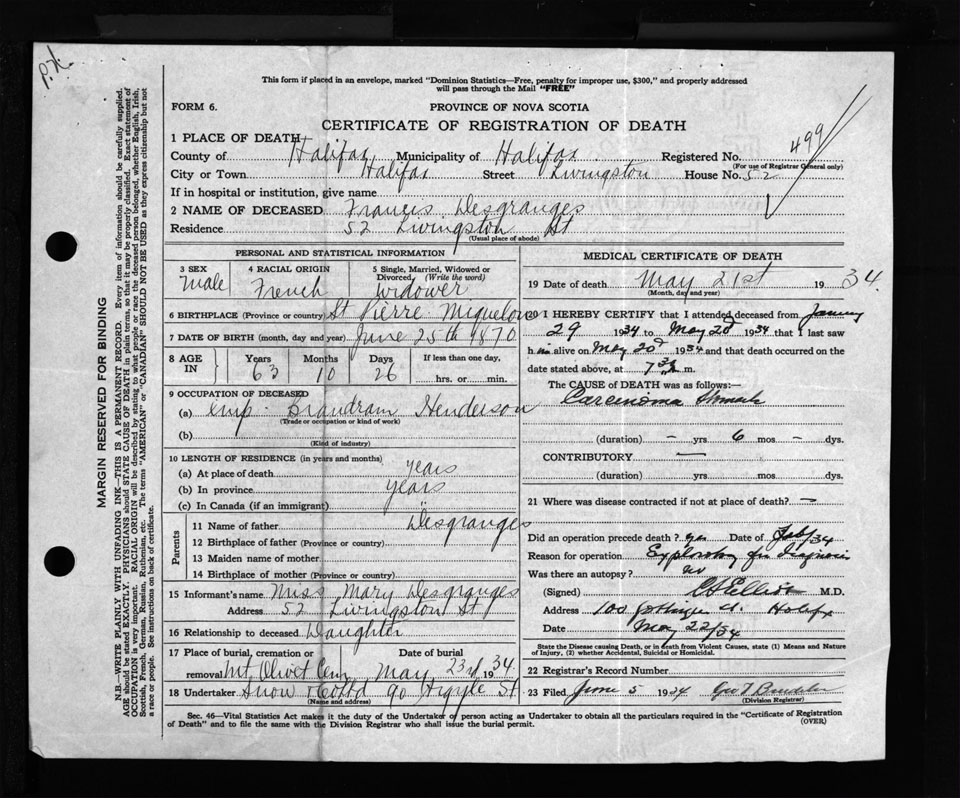 P.H.
This form if placed in an envelope, marked "Dominion Statistics—Free, penalty for improper use, $300," and properly addressed
will pass through the Mail "FREE"
FORM 6.
PROVINCE OF NOVA SCOTIA
CERTIFICATE OF REGISTRATION OF DEATH
1 PLACE OF DEATH
County of Halifax Municipality of Halifax Registered No. 499
(For use of Registrar General only)
City or Town Halifax Street Livingston House No. 52
If in hospital or institution, give name
2 NAME OF DECEASED Francis Desgranges
Residence 52 Livingston St
(Usual place of abode)
PERSONAL AND STATISTICAL INFORMATION
3 SEX 4 RACIAL ORIGIN 5 Single, Married, Widowed or
Divorced (Write the word)
Male French Widower
6 BIRTHPLACE (Province or country) St Pierre Miquelon
7 DATE OF BIRTH (month, day and year) June 25th 1870
8 AGE IN Years Months Days If less than one day,
63 10 26 hrs. or min.
9 OCCUPATION OF DECEASED
(a) emp. Brandram Henderson
(Trade or occupation or kind of work)
(b)
(Kind of industry)
10 LENGTH OF RESIDENCE (in years and months)
(a) At place of death years
(b) In province years
(c) In Canada (if an immigrant) "
Parents
11 Name of father Desgranges
12 Birthplace of father (Province or country)
13 Maiden name of mother
14 Birthplace of mother (Province or country)
15 Informant's name Miss Mary Desgranges
Address 52 Livingston St
16 Relationship to deceased Daughter
17 Place of burial, cremation or Date of burial
removal Mt. Olivet Cem May 23rd, 1934.
18 Undertaker Snow & Co Ltd 90 Argyle St
(Name and address)
MEDICAL CERTIFICATE OF DEATH
19 Date of death May 21st 1934.
(Month, day and year)
20 I HEREBY CERTIFY that I attended deceased from January
29 1934 to May 20 1934 that I last saw
h im alive on May 20 1934 and that death occurred on the
date stated above, at 7 m.
The CAUSE of DEATH was as follows:—
Carcinoma Stomach
(duration) — yrs 6 mos — dys.
CONTRIBUTORY —
(duration) yrs mos dys.
21 Where was disease contracted if not at place of death? —
Did an operation precede death? yes Date of Feb/34
Reason for operation Exploratory for diagnosis
Was there an autopsy? no
(Signed) Elliott M.D.
Address 100 Gottingen St. Halifax
Date May 22/34
State the Disease causing Death, or in death from Violent Causes, state (1) Means and Nature
of Injury, (2) whether Accidental, Suicidal or Homicidal.
22 Registrar's Record Number
23 Filed June 5 1934 Geo T
(Division Registrar)
Sec. 46—Vital Statistics Act makes it the duty of the Undertaker or person acting as Undertaker to obtain all the particulars required in the "Certificate of Registration
of Death" and to file the same with the Division Registrar who shall issue the burial permit. (OVER)
MARGIN RESERVED FOR BINDING
N.B.—WRITE PLAINLY WITH UNFADING INK—THIS IS A PERMANENT RECORD. Every item of information should be carefully supplied.
AGE should be stated EXACTLY. PHYSICIANS should STATE CAUSE OF DEATH in plain terms, so that it may be properly classified. Exact statement of
OCCUPATION is very important. RACIAL ORIGIN will be described by stating to what people or race the deceased person belonged, whether English, Irish,
Scottish, French, German, Russian, Ruthenian, etc. The terms "AMERICAN" or "CANADIAN" SHOULD NOT BE USED as they express citizenship but not
a race or people. See instructions on back of certificate.